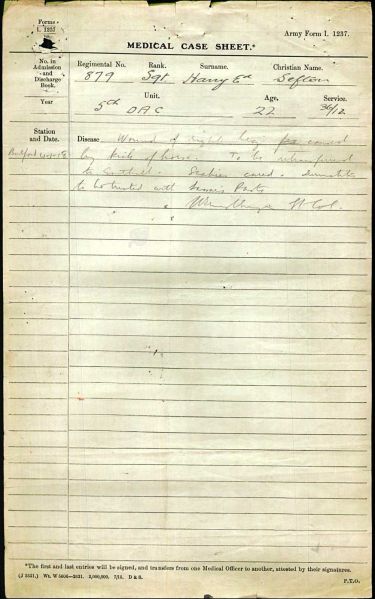 Forms
I. 1237
Army Form I. 1237.
MEDICAL CASE SHEET.*
No. in Admission and Discharge Book.
Regimental No. Rank. Surname. Christian Name.
879 Sgt Harry Ed Sefton
Year
Unit. Age. Service.
5th DAC 22 36/12
Station and Date.
Disease Wound of right leg caused
by kick of horse. To be transferred
to Southall. Scabies cured.
to be treated with
Lt Col.
*The first and last entries will be signed, and transfers from one Medical Officer to another, attested by their signatures.
(J 5321.) Wt. W 5006—2831. 2,000,000. 7/15. D & S.
P.T.O.